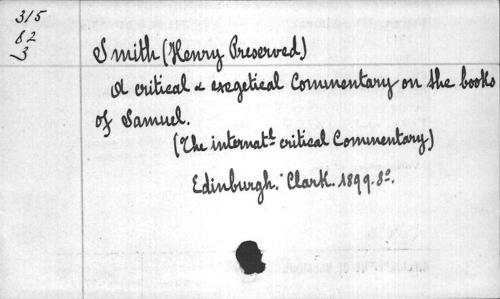 315
82
3
Smith (Henry Preserved)
A critical & exegetical Commentary on the books
of Samuel.
(The internatl critical Commentary)
Edinburgh. Clark. 1899. 8o.